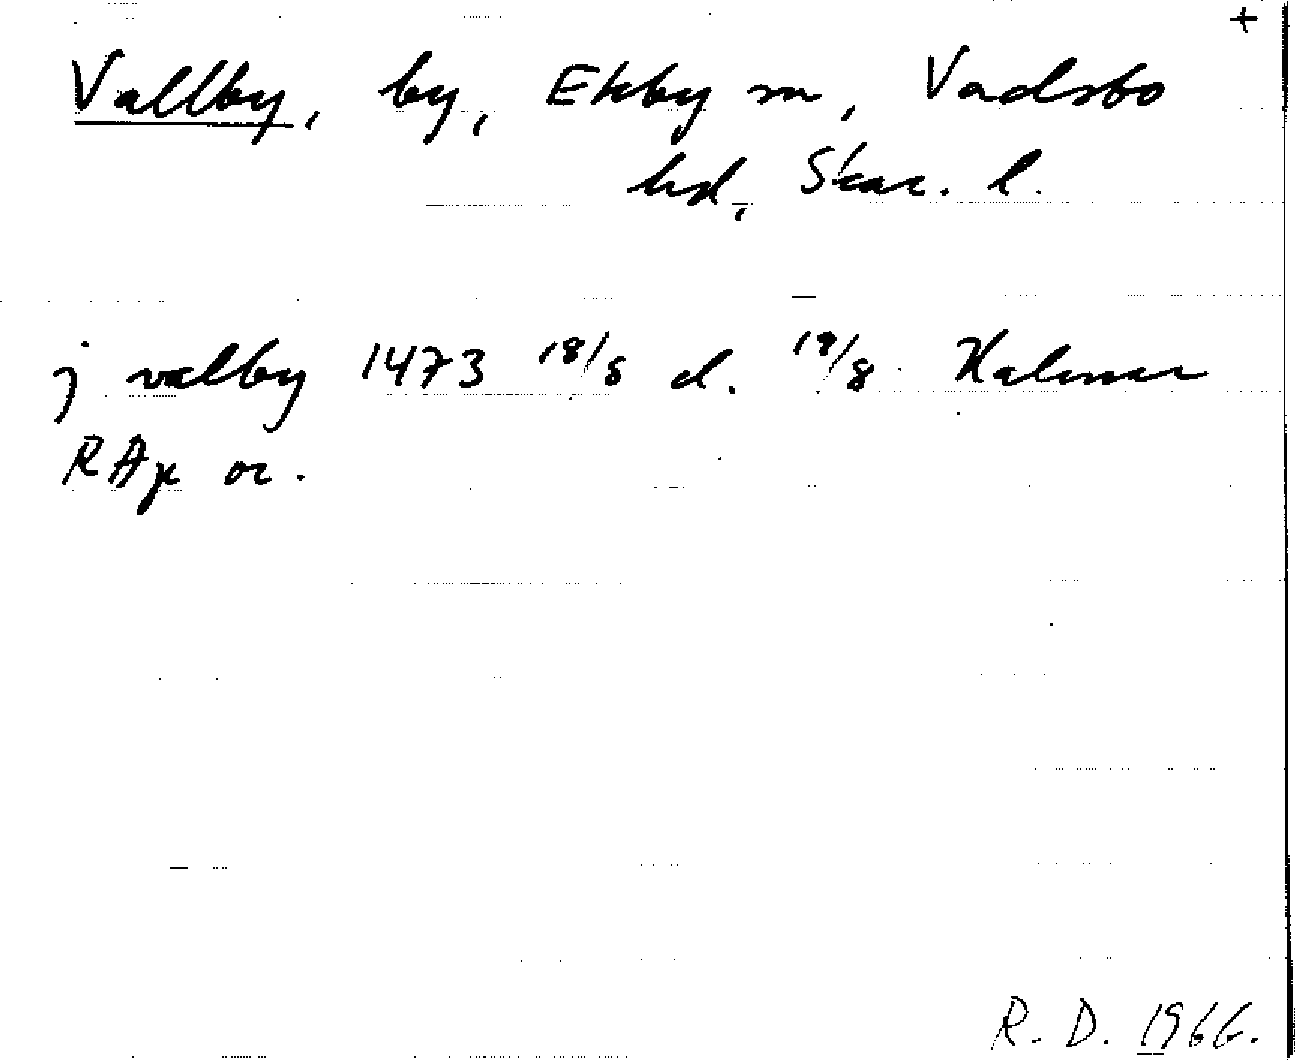 +
Vallby, by, Ekby sn, Vadsbo
hd, Skar. l.
j valby 1473 18/8 d. 19/8 Kalmar
RAp or.
R. D. 1966.